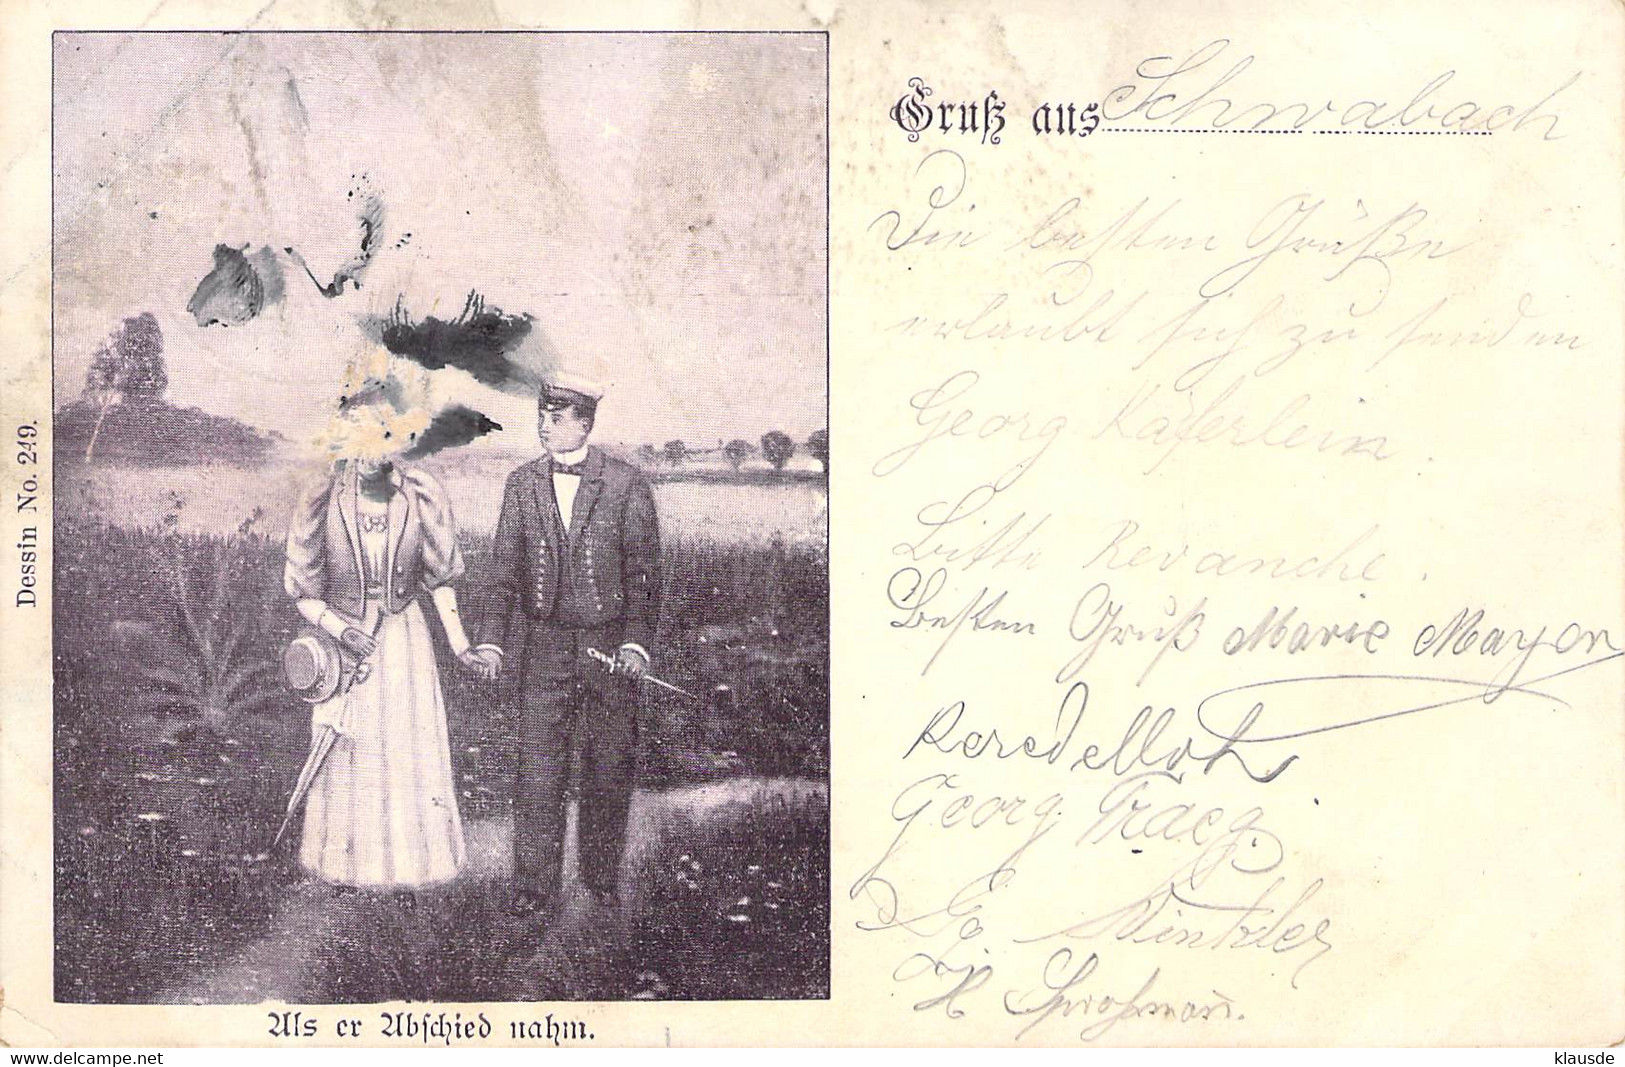 Dessin No. 249.
Als er Abschied nahm.
Gruß aus Schwabach
Die besten Grüße
erlaubt sich zu senden
Georg Käferlein.
Bitte Revanche.
Besten Gruß Marie Mayer
Georg
Gg. Winkler
H
klausde
www.delcampe.net